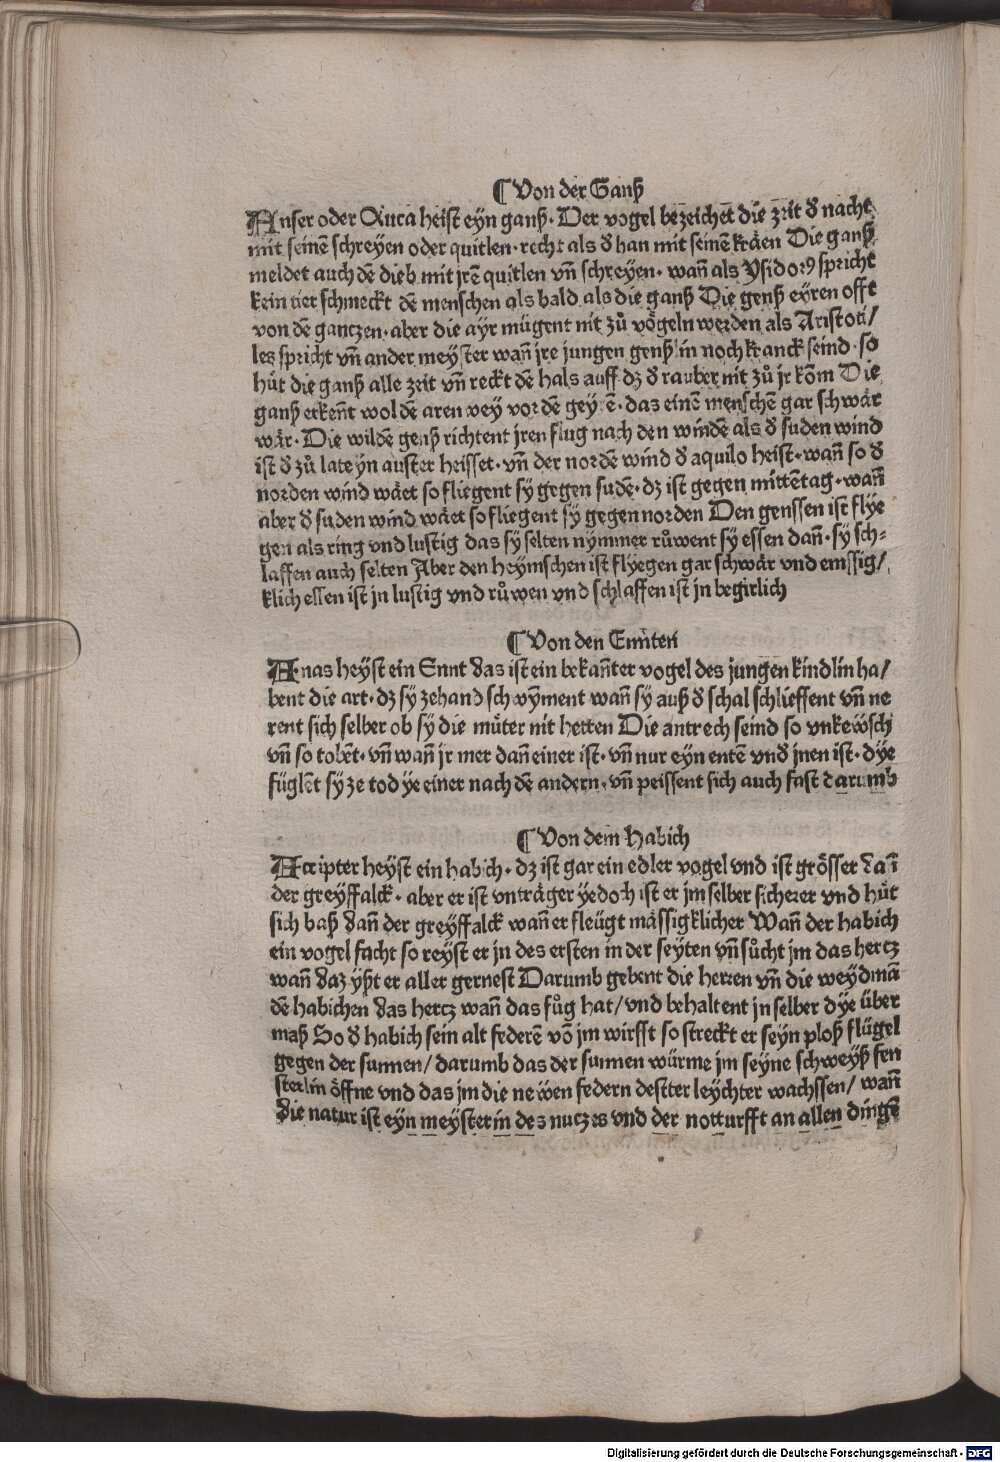 ¶ Von der Ganß
Anser oder Auca heist eyn ganß · Der vogel bezeichet die zeit d̕ nacht
mit seinē schreyen oder quitlen · recht als d̕ han mit seinē kräen Die ganß
meldet auch dē dieb mit jrē quitlen vn̄ schreyen · wan̄ als Ysidorꝰ spricht
kein tier schmeckt dē menschen als bald als die ganß Die genß eyren offt
von dē gantzen · aber die ayr mügent nit zů vögeln werden als Aristoti/
les spricht vn̄ ander meyster wan̄ jre jungen genßlin noch kranck seind · so
hůt die ganß alle zeit vn̄ reckt dē hals auff dz d̕ rauber nit zů jr kōm Die
ganß erkēnt wol dē aren wey vor dē geyrē · das einē menschē gar schwär
wär · Die wildē genß richtent jren flug nach den windē als d̕ suden wind
ist d̕ zů lateyn auster heisset · vn̄ der nordē wind d̕ aquilo heist · wan̄ so d̕
norden wind wäet so fliegent sy gegen sudē · dz ist gegen mittētag · wan̄
aber d̕ suden wind wäet so fliegent sy gegen norden Den genssen ist flye
gen als ring vnd lustig das sy selten nymmer růwent sy essen dan̄ · sy sch⸗
laffen auch selten Aber den heymschen ist flyegen gar schwär vnd emssig/
klich essen ist jn lustig vnd růwen vnd schlaffen ist jn begirlich
¶ Von den Ennten
Anas heyst ein Ennt das ist ein bekan̄ter vogel des jungen kindlin ha/
bent die art · dz sy zehand schwȳment wan̄ sy auß d̕ schal schlieffent vn̄ ne
rent sich selber ob sy die můter nit hetten Die antrech seind so vnkeẅsch
vn̄ so tobēt · vn̄ wan̄ jr mer dan̄ einer ist · vn̄ nur eyn entē vnd̕ jnen ist · dye
füglēt sy ze tod ye einer nach dē andern · vn̄ peissent sich auch fast darumb
¶ Von dem Habich
Accipter heyst ein habich · dz ist gar ein edler vogel vnd ist grösser dan̄
der greyffalck · aber er ist vnträger yedoch ist er jm selber sicherer vnd hůt
sich baß dan̄ der greyffalck wan̄ er fleügt mässigklicher Wan̄ der habich
ein vogel facht so reyst er jn des ersten in der seyten vn̄ sůcht jm das hertz
wan̄ daz yßt er aller gernest Darumb gebent die herren vn̄ die weydmā
dē habichen das hertz wan̄ das fůg hat/ vnd behaltent jn selber dye über
maß So d̕ habich sein alt federē vō jm wirfft so streckt er seyn ploß flügel
gegen der sunnen/ darumb das der sunnen würme jm seyne schweyß fen
sterlin öffne vnd das jm die neẅen federn destter leychter wachssen/ wan̄
die natur ist eyn meysterin des nutzes vnd der notturfft an allen dingē
Digitalisierung gefördert durch die Deutsche Forschungsgemeinschaft - DFG